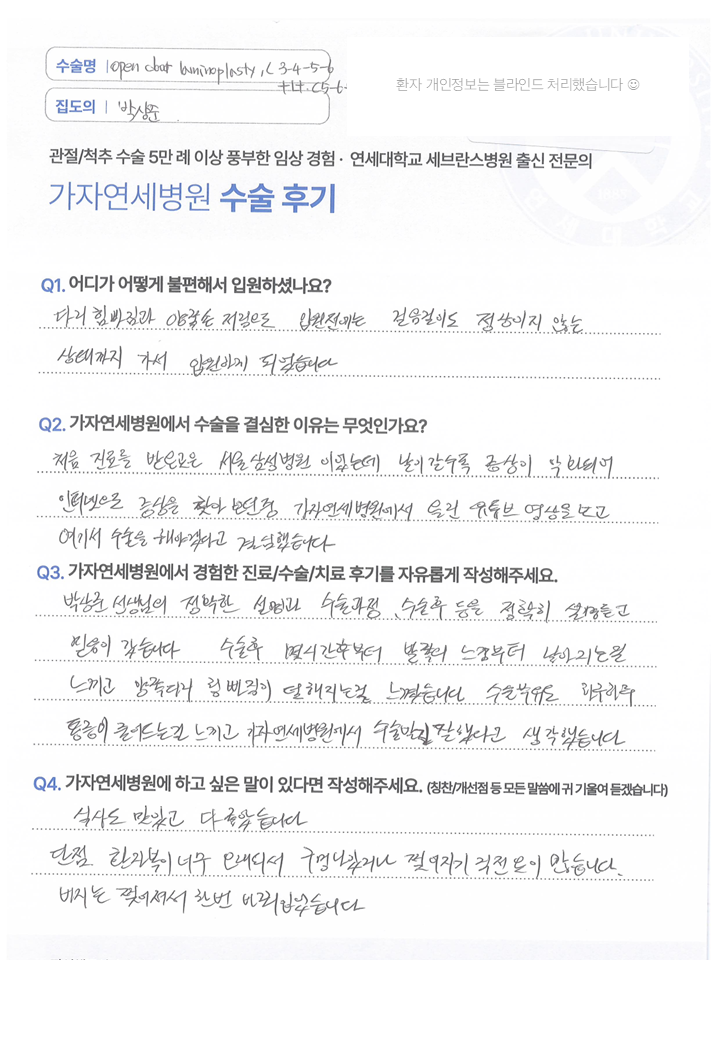 수술명 | open door laminoplasty, C 3-4-5-6
+ Lt. C5-6.
환자 개인정보는 블라인드 처리했습니다 ☺
집도의 | 박상준
관절/척추 수술 5만 례 이상 풍부한 임상 경험 · 연세대학교 세브란스병원 출신 전문의
가자연세병원 수술 후기
Q1. 어디가 어떻게 불편해서 입원하셨나요?
다리 힘빠짐과 양쪽손 저림으로 입원전에는 걸음걸이도 정상이지 않는
상태까지 가서 입원하게 되었습니다
Q2. 가자연세병원에서 수술을 결심한 이유는 무엇인가요?
처음 진료를 받은곳은 서울삼성병원 이었는데 날이갈수록 증상이 악화되어
인터넷으로 증상을 찾아 보던중 가자연세병원에서 올린 유튜브 영상을 보고
여기서 수술을 해야겠다고 결심했습니다
Q3. 가자연세병원에서 경험한 진료/수술/치료 후기를 자유롭게 작성해주세요.
박상준 선생님의 정확한 설명과 수술과정, 수술후 등을 정확히 설명듣고
믿음이 갔습니다 수술후 몇시간후부터 발쪽의 느낌부터 날아지는걸
느끼고 양쪽다리 힘빠짐이 덜해지는걸 느꼈습니다 수술부위도 하루하루
통증이 줄어드는걸 느끼고 가자연세병원에서 수술만큼 잘했다고 생각했습니다
Q4. 가자연세병원에 하고 싶은 말이 있다면 작성해주세요. (칭찬/개선점 등 모든 말씀에 귀 기울여 듣겠습니다)
식사도 맛있고 다 좋았습니다
단점 환자복이 너무 오래되서 구멍나있거나 찢어지기 직전 옷이 많습니다.
바지는 찢어져서 한번 바꿔입었습니다